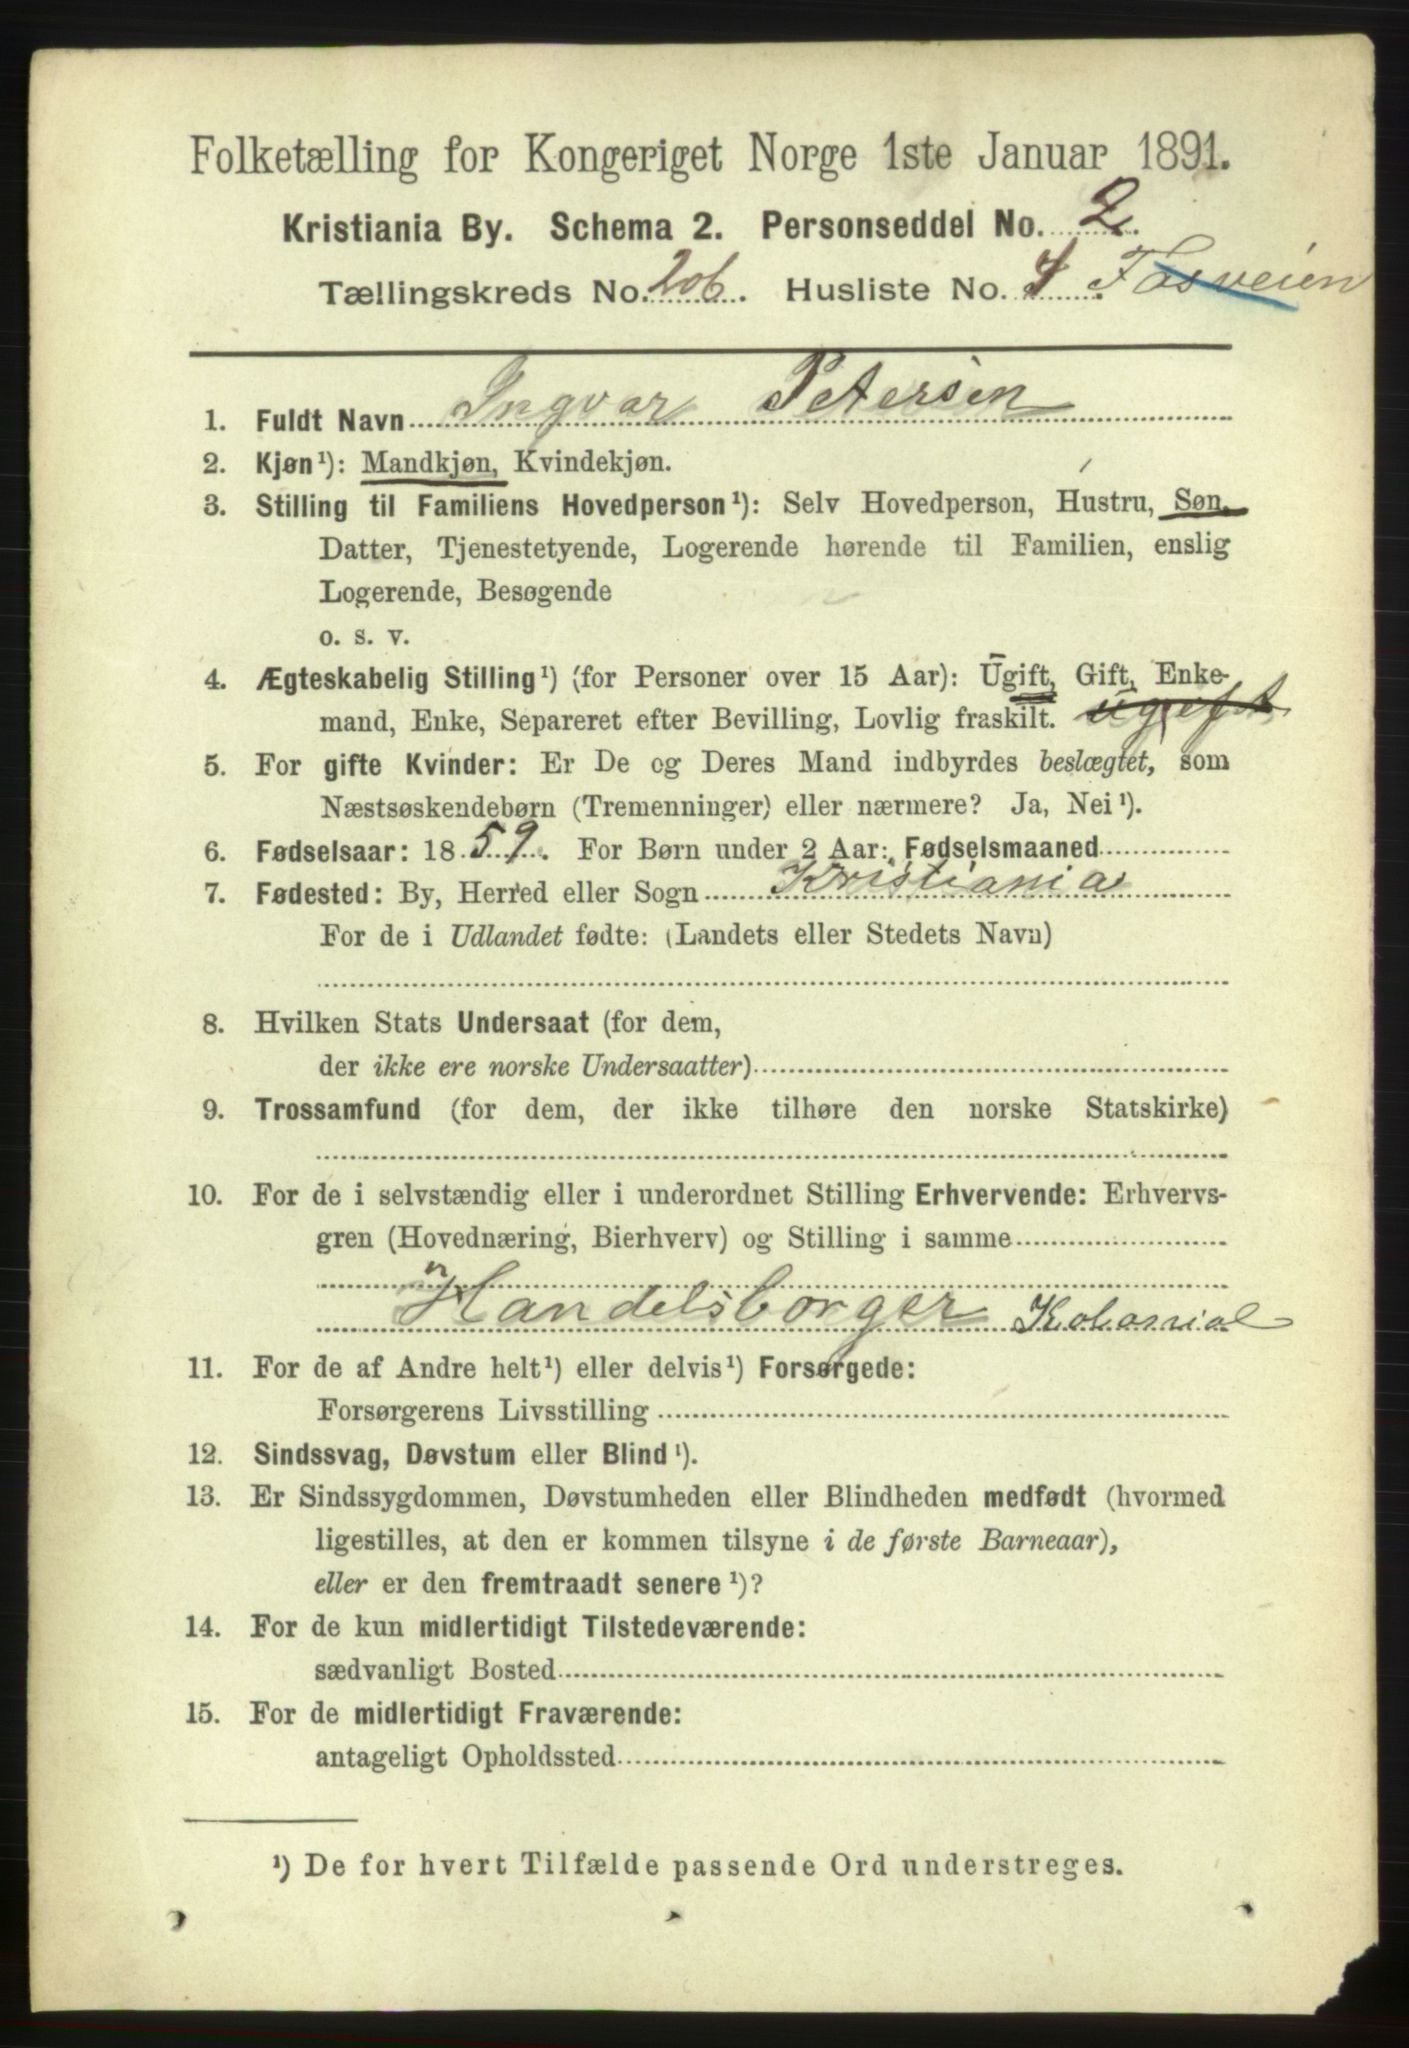 Folketælling for Kongeriget Norge 1ste Januar 1891.
Kristiania By. Schema 2. Personseddel No. 2.
Tællingskreds No. 206. Husliste No. 4
1. Fuldt Navn Ingvar Petersen
2. Kjøn¹): Mandkjøn, Kvindekjøn.
3. Stilling til Familiens Hovedperson¹): Selv Hovedperson, Hustru, Søn,
Datter, Tjenestetyende, Logerende hørende til Familien, enslig
Logerende, Besøgende
o. s. v.
4. Ægteskabelig Stilling¹) (for Personer over 15 Aar): Ugift, Gift, Enke-
mand, Enke, Separeret efter Bevilling, Lovlig fraskilt. ugift
5. For gifte Kvinder: Er De og Deres Mand indbyrdes beslægtet, som
Næstsøskendebørn (Tremenninger) eller nærmere? Ja, Nei¹).
6. Fødselsaar: 1859. For Børn under 2 Aar: Fødselsmaaned
7. Fødested: By, Herred eller Sogn Kristiania
For de i Udlandet fødte: (Landets eller Stedets Navn)
8. Hvilken Stats Undersaat (for dem,
der ikke ere norske Undersaatter)
9. Trossamfund (for dem, der ikke tilhøre den norske Statskirke)
10. For de i selvstændig eller i underordnet Stilling Erhvervende: Erhvervs-
gren (Hovednæring, Bierhverv) og Stilling i samme
Handelsborger Kolonial
11. For de af Andre helt¹) eller delvis¹) Forsørgede:
Forsørgerens Livsstilling
12. Sindssvag, Døvstum eller Blind¹).
13. Er Sindssygdommen, Døvstumheden eller Blindheden medfødt (hvormed
ligestilles, at den er kommen tilsyne i de første Barneaar),
eller er den fremtraadt senere¹)?
14. For de kun midlertidigt Tilstedeværende:
sædvanligt Bosted
15. For de midlertidigt Fraværende:
antageligt Opholdssted
¹) De for hvert Tilfælde passende Ord understreges.